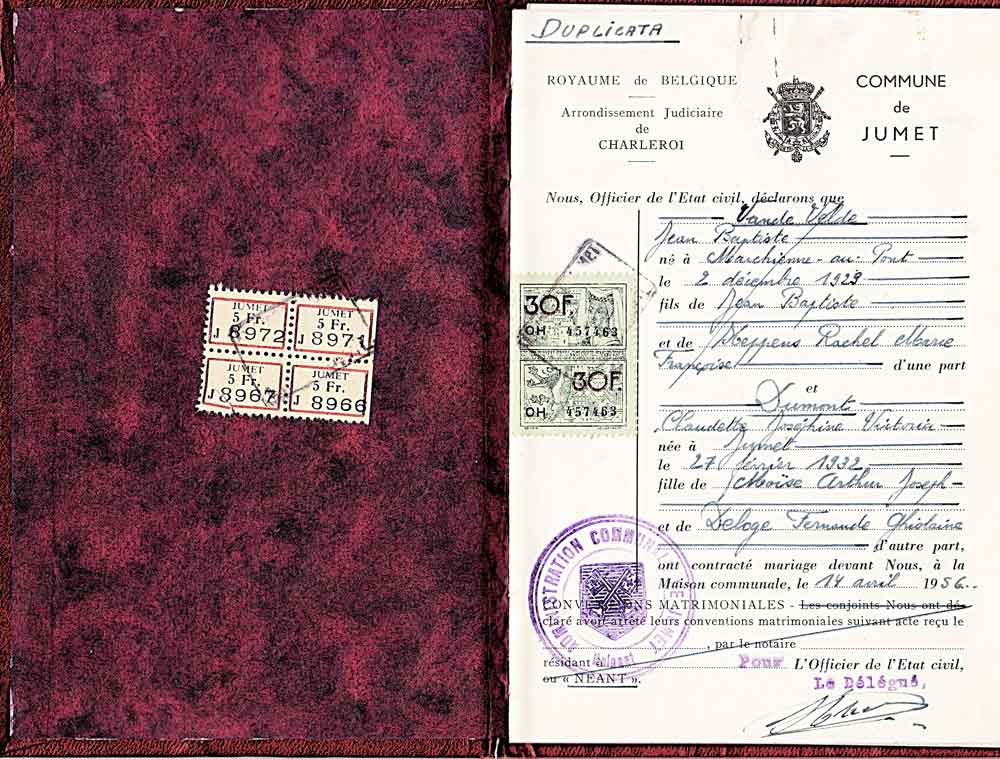 JUMET
5 Fr.
J 8972
JUMET
5 Fr.
J 8971
JUMET
5 Fr.
J 8967
JUMET
5 Fr.
J 8966
DUPLICATA
ROYAUME de BELGIQUE
Arrondissement Judiciaire
de
CHARLEROI
COMMUNE
de
JUMET
Nous, Officier de l'Etat civil, déclarons que
Vande Velde
Jean Baptiste
né à Marchienne-au-Pont
le 2 décembre 1929
fils de Jean Baptiste
et de Heppens Rachel Marie
Françoise d'une part
et
Dumont
Claudette Joséphine Victoria
née à Jumet
le 27 février 1932
fille de Moïse Arthur Joseph
et de Deloge Fernande Ghislaine
d'autre part,
ont contracté mariage devant Nous, à la
Maison communale, le 14 avril 1956.
CONVENTIONS MATRIMONIALES - Les conjoints Nous ont dé-
claré avoir arrêté leurs conventions matrimoniales suivant acte reçu le
, par le notaire
résidant à
ou « NEANT ».
Pour L'Officier de l'Etat civil,
Le Délégué,
30F.
OH 457463
30F.
OH 457463
ADMINISTRATION COMMUNALE DE JUMET
Hainaut